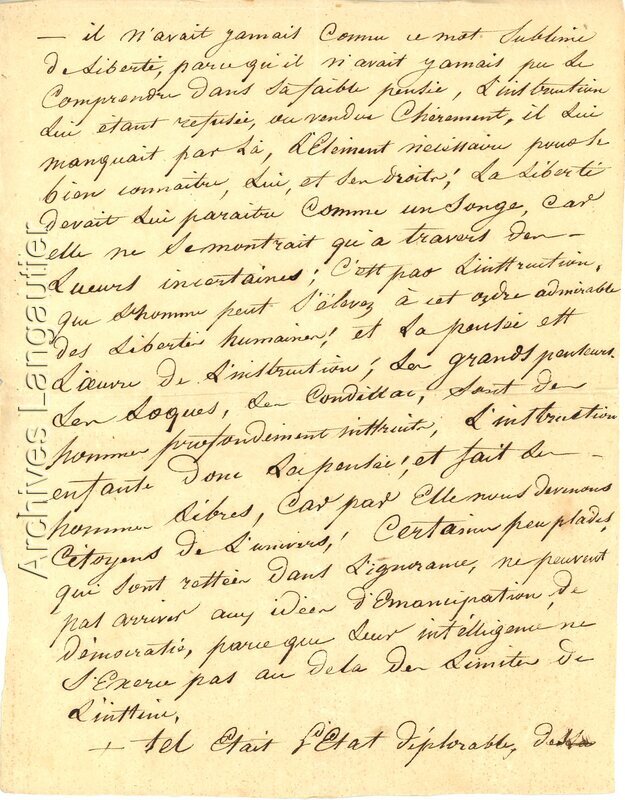 — il n'avait jamais Connu ce mot Sublime
de Liberté, parce qu'il n'avait jamais pu le
Comprendre dans Sa faible pensée, L'instruction
Lui etant refusée, ou vendue Chèrement, il Lui
manquait par Là, L'Elément nécéssaire pour se
bien connaitre, Lui, et Ses droits! La Liberté
devait Lui paraitre Comme un Songe, Car
elle ne Se montrait qu'a travers des —
Lueurs incertaines; C'est par L'instruction,
que L'homme peut S'élever à cet ordre admirable
des Libertés humaines! et La pensée est
L'œuvre de L'instruction; Les grands penseurs
Les Loques, Les Condillac, Sont des
hommes profondément instruits, L'instruction
enfante donc La pensée! et fait Les —
hommes Libres, Car par Elle nous devenons
Citoyens de L'univers! Certaines peuplades,
qui Sont restées dans L'ignorance, ne peuvent
pas arriver aux idées d'Emancipation, de
démocratie, parce que Leur intélligence ne
S'Exerce pas au dela des Limites de
L'instinc.
+ tel Etait L'Etat déplorable, de La
Archives Langautier